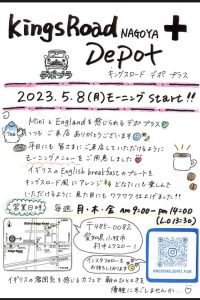 KingsRoad NAGOYA +
Depot
デポプラ
キングスロード デポ プラス
2023.5.8(月)モーニング Start!!
MiniとEnglandを感じられるデポプラ
いつも ご来店 ありがとうございます
Tea
平日にも 皆さまにご来店していただけるように
モーニングメニューを ご用意しました
イギリスの English breakfastのプレートを
キングスロード風にアレンジ どなたにも楽しんで
いただけるように 見た目にもワクワク仕上げました!!
営業日時 毎週 月・木・金 Am 9:00-pm 14:00
(L.O 13:30)
〒485-0082
愛知県小牧市
村中1220-1
インスタフォローも
お待ちしております
KINGSROAD.DEPOT.PLUS
イギリスの雰囲気を感じるカフェで 朝のひとときを
優雅にすごしませんか…♡